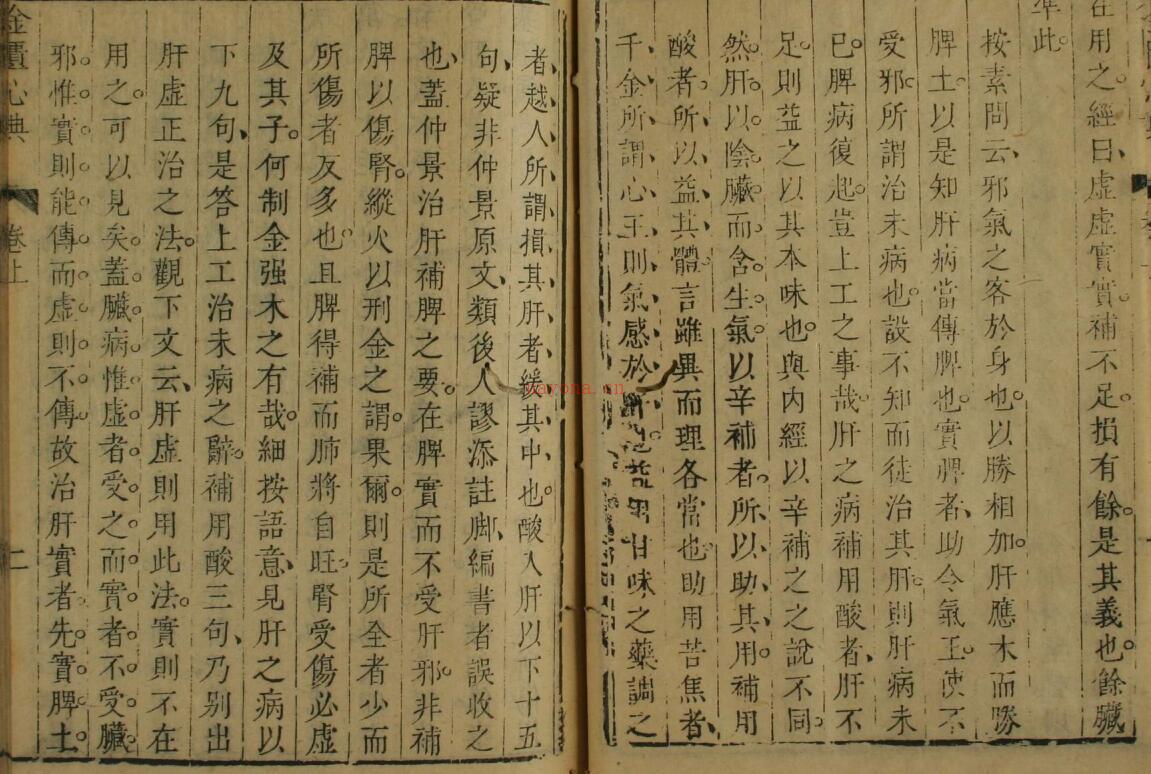 在用之經曰虛虛實實補不足損有餘是其義也餘臟
準此
按素問云邪氣之客於身也以勝相加肝應木而勝
脾土以是知肝病當傳脾也實脾者助令氣王使不
受邪所謂治未病也設不知而徒治其肝則肝病未
已脾病復起豈上工之事哉肝之病補用酸者肝不
足則益之以其本味也與內經以辛補之之說不同
然肝以陰臟而含生氣以辛補者所以助其用補用
酸者所以益其體言雖異而理各當也助用苦焦者
千金所謂心王則氣感於肝也益用甘味之藥調之
者越人所謂損其肝者緩其中也酸入肝以下十五
句疑非仲景原文類後人謬添註脚編書者誤收之
也蓋仲景治肝補脾之要在脾實而不受肝邪非補
脾以傷腎縱火以刑金之謂果爾則是所全者少而
所傷者反多也且脾得補而肺將自旺腎受傷必虛
及其子何制金强木之有哉細按語意見肝之病以
下九句是答上工治未病之辭補用酸三句乃別出
肝虛正治之法觀下文云肝虛則用此法實則不在
用之可以見矣蓋臟病惟虛者受之而實者不受臟
邪惟實則能傳而虛則不傳故治肝實者先實脾土
金匱心典
卷上
二
yayona.cn